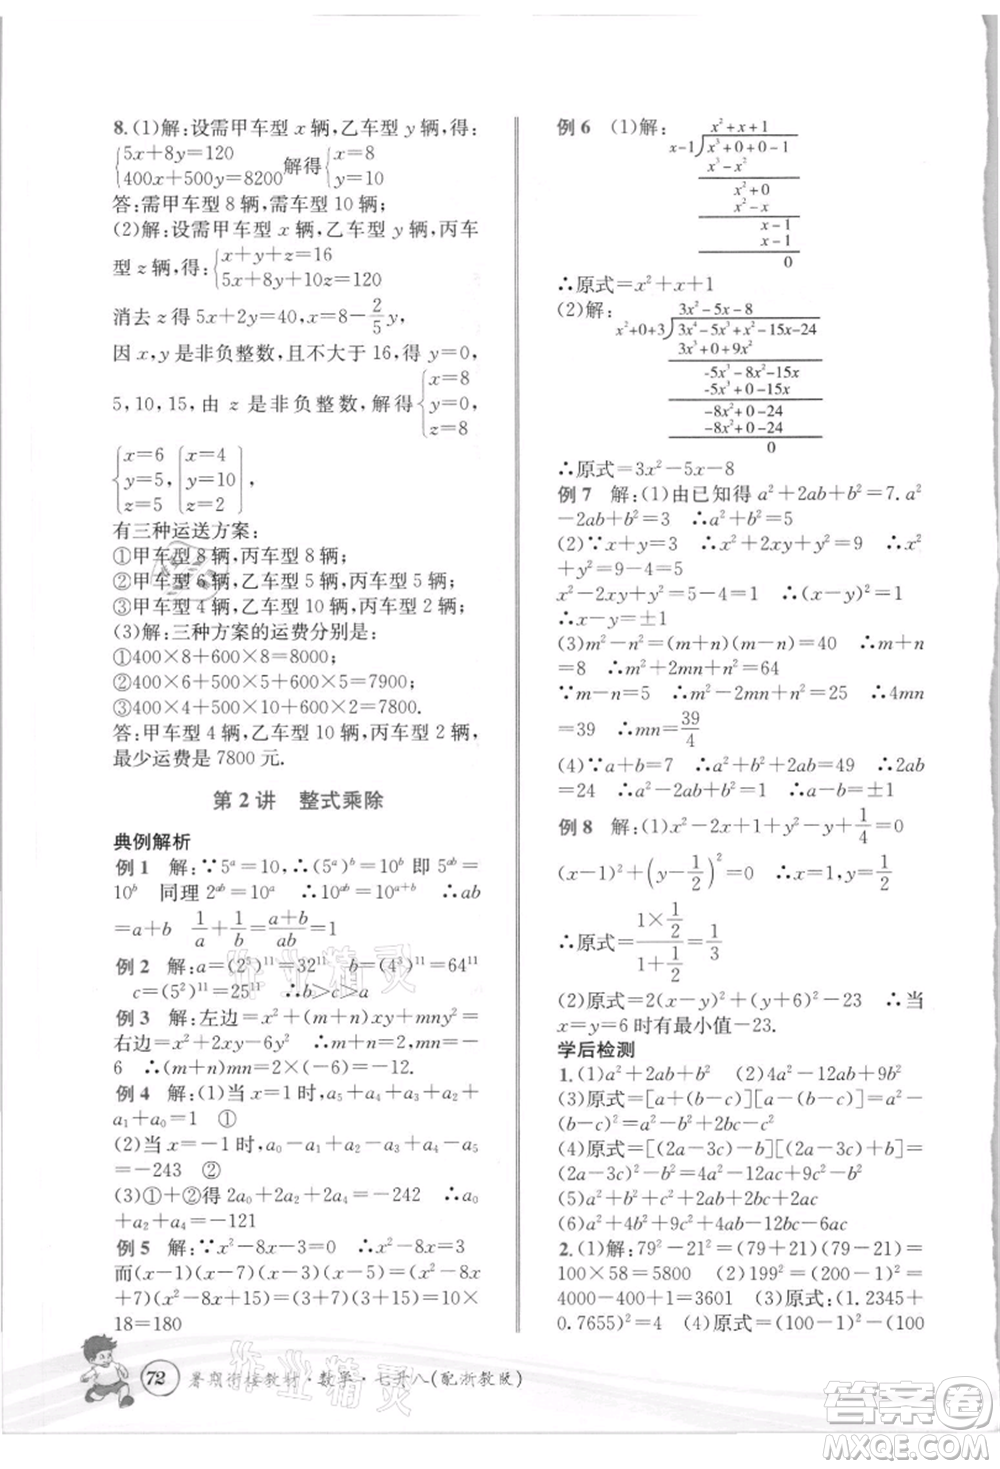 8.(1)解:设需甲车型 x 辆,乙车型 y 辆,得:
{5x+8y=120
400x+500y=8200 解得{x=8
y=10
答:需甲车型 8 辆,需车型 10 辆;
(2)解:设需甲车型 x 辆,乙车型 y 辆,丙车
型 z 辆,得:{x+y+z=16
5x+8y+10z=120
消去 z 得 5x+2y=40,x=8-2/5y,
因 x,y 是非负整数,且不大于 16,得 y=0,
5,10,15,由 z 是非负整数,解得{x=8
y=0,
z=8
{x=6
y=5,
z=5
{x=4
y=10,
z=2
有三种运送方案:
①甲车型 8 辆,丙车型 8 辆;
②甲车型 6 辆,乙车型 5 辆,丙车型 5 辆;
③甲车型 4 辆,乙车型 10 辆,丙车型 2 辆;
(3)解:三种方案的运费分别是:
①400×8+600×8=8000;
②400×6+500×5+600×5=7900;
③400×4+500×10+600×2=7800.
答:甲车型 4 辆,乙车型 10 辆,丙车型 2 辆,
最少运费是 7800 元.
第 2 讲 整式乘除
典例解析
例 1 解:∵5ᵃ=10,∴(5ᵃ)ᵇ=10ᵇ 即 5ᵃᵇ=
10ᵇ 同理 2ᵃᵇ=10ᵃ ∴10ᵃᵇ=10ᵃ⁺ᵇ ∴ab
=a+b 1/a+1/b=(a+b)/ab=1
例 2 解:a=(2⁵)¹¹=32¹¹ b=(4³)¹¹=64¹¹
c=(5²)¹¹=25¹¹ ∴b>c>a
例 3 解:左边=x²+(m+n)xy+mny²=
右边=x²+2xy-6y² ∴m+n=2,mn=-
6 ∴(m+n)mn=2×(-6)=-12.
例 4 解:(1)当 x=1 时,a₅+a₄+a₃+a₂+
a₁+a₀=1 ①
(2)当 x=-1 时,a₀-a₁+a₂-a₃+a₄-a₅
=-243 ②
(3)①+②得 2a₀+2a₂+2a₄=-242 ∴a₀
+a₂+a₄=-121
例 5 解:∵x²-8x-3=0 ∴x²-8x=3
而(x-1)(x-3)(x-5)(x-7)=(x²-8x+
7)(x²-8x+15)=(3+7)(3+15)=10×
18=180
72 暑期衔接教材·数学·七升八(配浙教版)
例 6 (1)解:
x²+x+1
x-1)x³+0+0-1
x³-x²
x²+0
x²-x
x-1
x-1
0
∴原式=x²+x+1
(2)解:
3x²-5x-8
x²+0+3)3x⁴-5x³+x²-15x-24
3x⁴+0+9x²
-5x³-8x²-15x
-5x³+0-15x
-8x²+0-24
-8x²+0-24
0
∴原式=3x²-5x-8
例 7 解:(1)由已知得 a²+2ab+b²=7.a²
-2ab+b²=3 ∴a²+b²=5
(2)∵x+y=3 ∴x²+2xy+y²=9 ∴x²
+y²=9-4=5
x²-2xy+y²=5-4=1 ∴(x-y)²=1
∴x-y=±1
(3)m²-n²=(m+n)(m-n)=40 ∴m+n
=8 ∴m²+2mn+n²=64
∵m-n=5 ∴m²-2mn+n²=25 ∴4mn
=39 ∴mn=39/4
(4)∵a²+b²+2ab=49 ∴2ab=24 ∴a²
+b²-2ab=1 ∴a-b=±1
例 8 解:(1)x²-2x+1+y²-y+1/4=0
(x-1)²+(y-1/2)²=0 ∴x=1,y=1/2
∴原式=(1×1/2)/(1+1/2)=1/3
(2)原式=2(x-6)²+(x-y)²-23 ∴当
x=y=6 时有最小值-23.
学后检测
1.(1)a²+2ab+b² (2)4a²-12ab+9b²
(3)原式=[a+(b-c)][a-(b-c)]=a²-
(b-c)²=a²-b²+2bc-c²
(4)原式=[(2a-3c)-b][(2a-3c)+b]=
(2a-3c)²-b²=4a²-12ac+9c²-b²
(5)a²+b²+c²-2ab-2bc+2ac
(6)4x²-12xy+9y²-1
2.(1)解:79²-21²=(79+21)(79-21)=
100×58=5800 (2)199²=(200-1)²=
4000-400+1=3601 (3)原式:(1.2345+
0.7655)²=4 (4)原式=(100-1)²-(100
作业精灵
作业精灵
答案圈
MXQE.COM